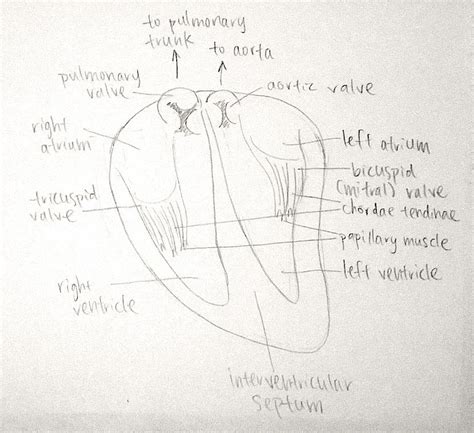 to pulmonary
trunk
to aorta
pulmonary
valve
aortic valve
right
atrium
left atrium
bicuspid
(mitral) valve
tricuspid
valve
chordae tendinae
papillary muscle
left ventricle
right
ventricle
interventricular
septum